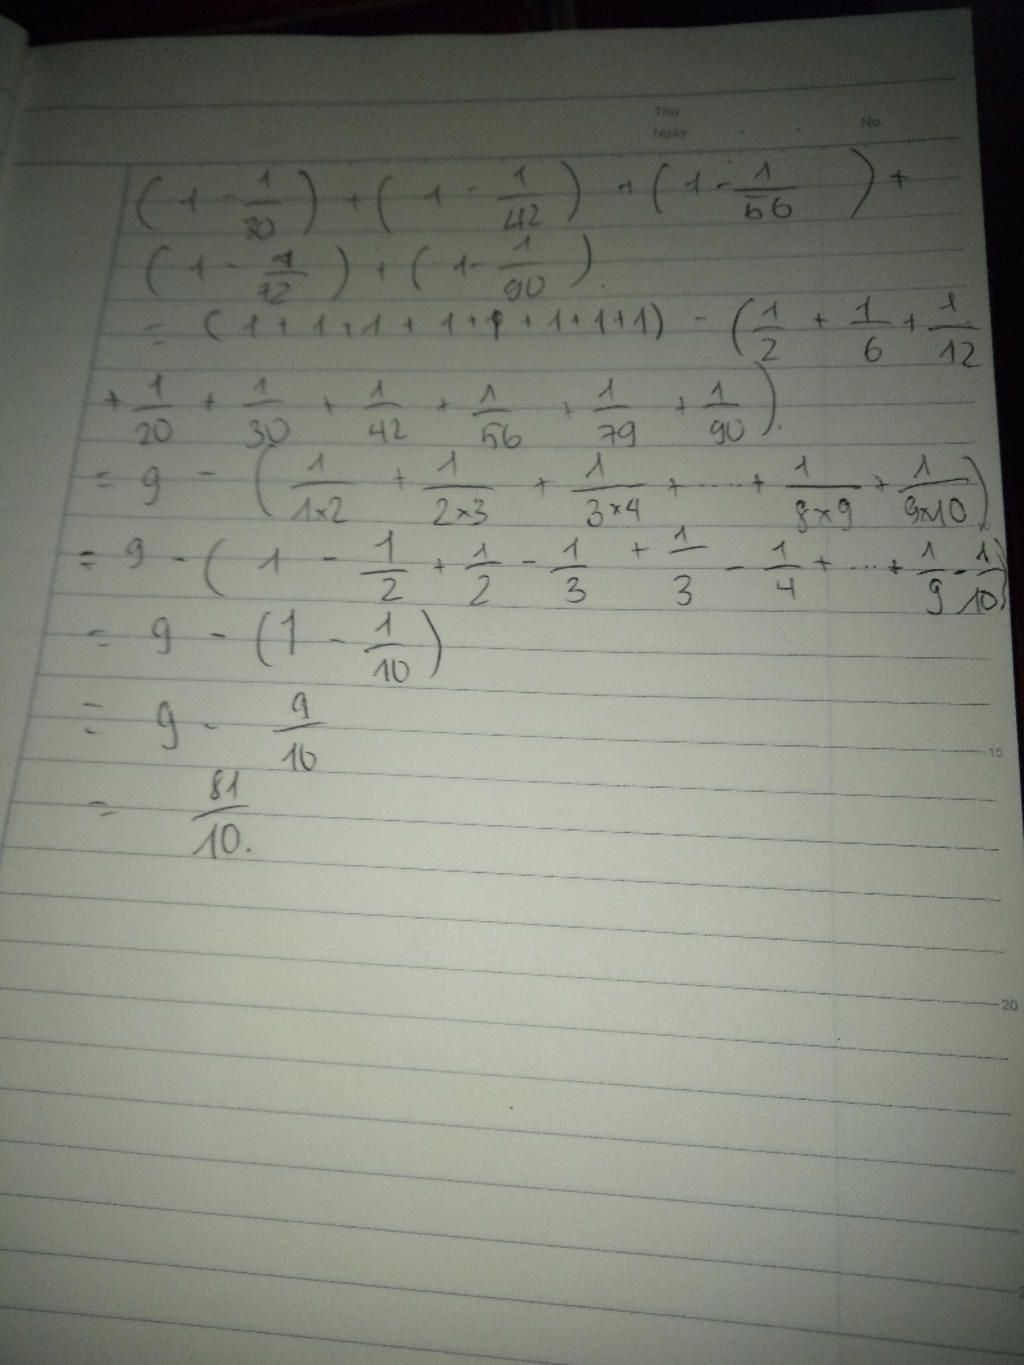 Thứ
Ngày No.
(1 - 1/30) + (1 - 1/42) + (1 - 1/56) +
(1 - 1/72) + (1 - 1/90).
= (1+1+1+1+1+1+1+1) - (1/2 + 1/6 + 1/12
+ 1/20 + 1/30 + 1/42 + 1/56 + 1/79 + 1/90).
= 9 - (1/1×2 + 1/2×3 + 1/3×4 + .... + 1/8×9 + 1/9×10)
= 9 - (1 - 1/2 + 1/2 - 1/3 + 1/3 - 1/4 + ... + 1/9 - 1/10)
= 9 - (1 - 1/10)
= 9 - 9/10
15
= 81/10.
20